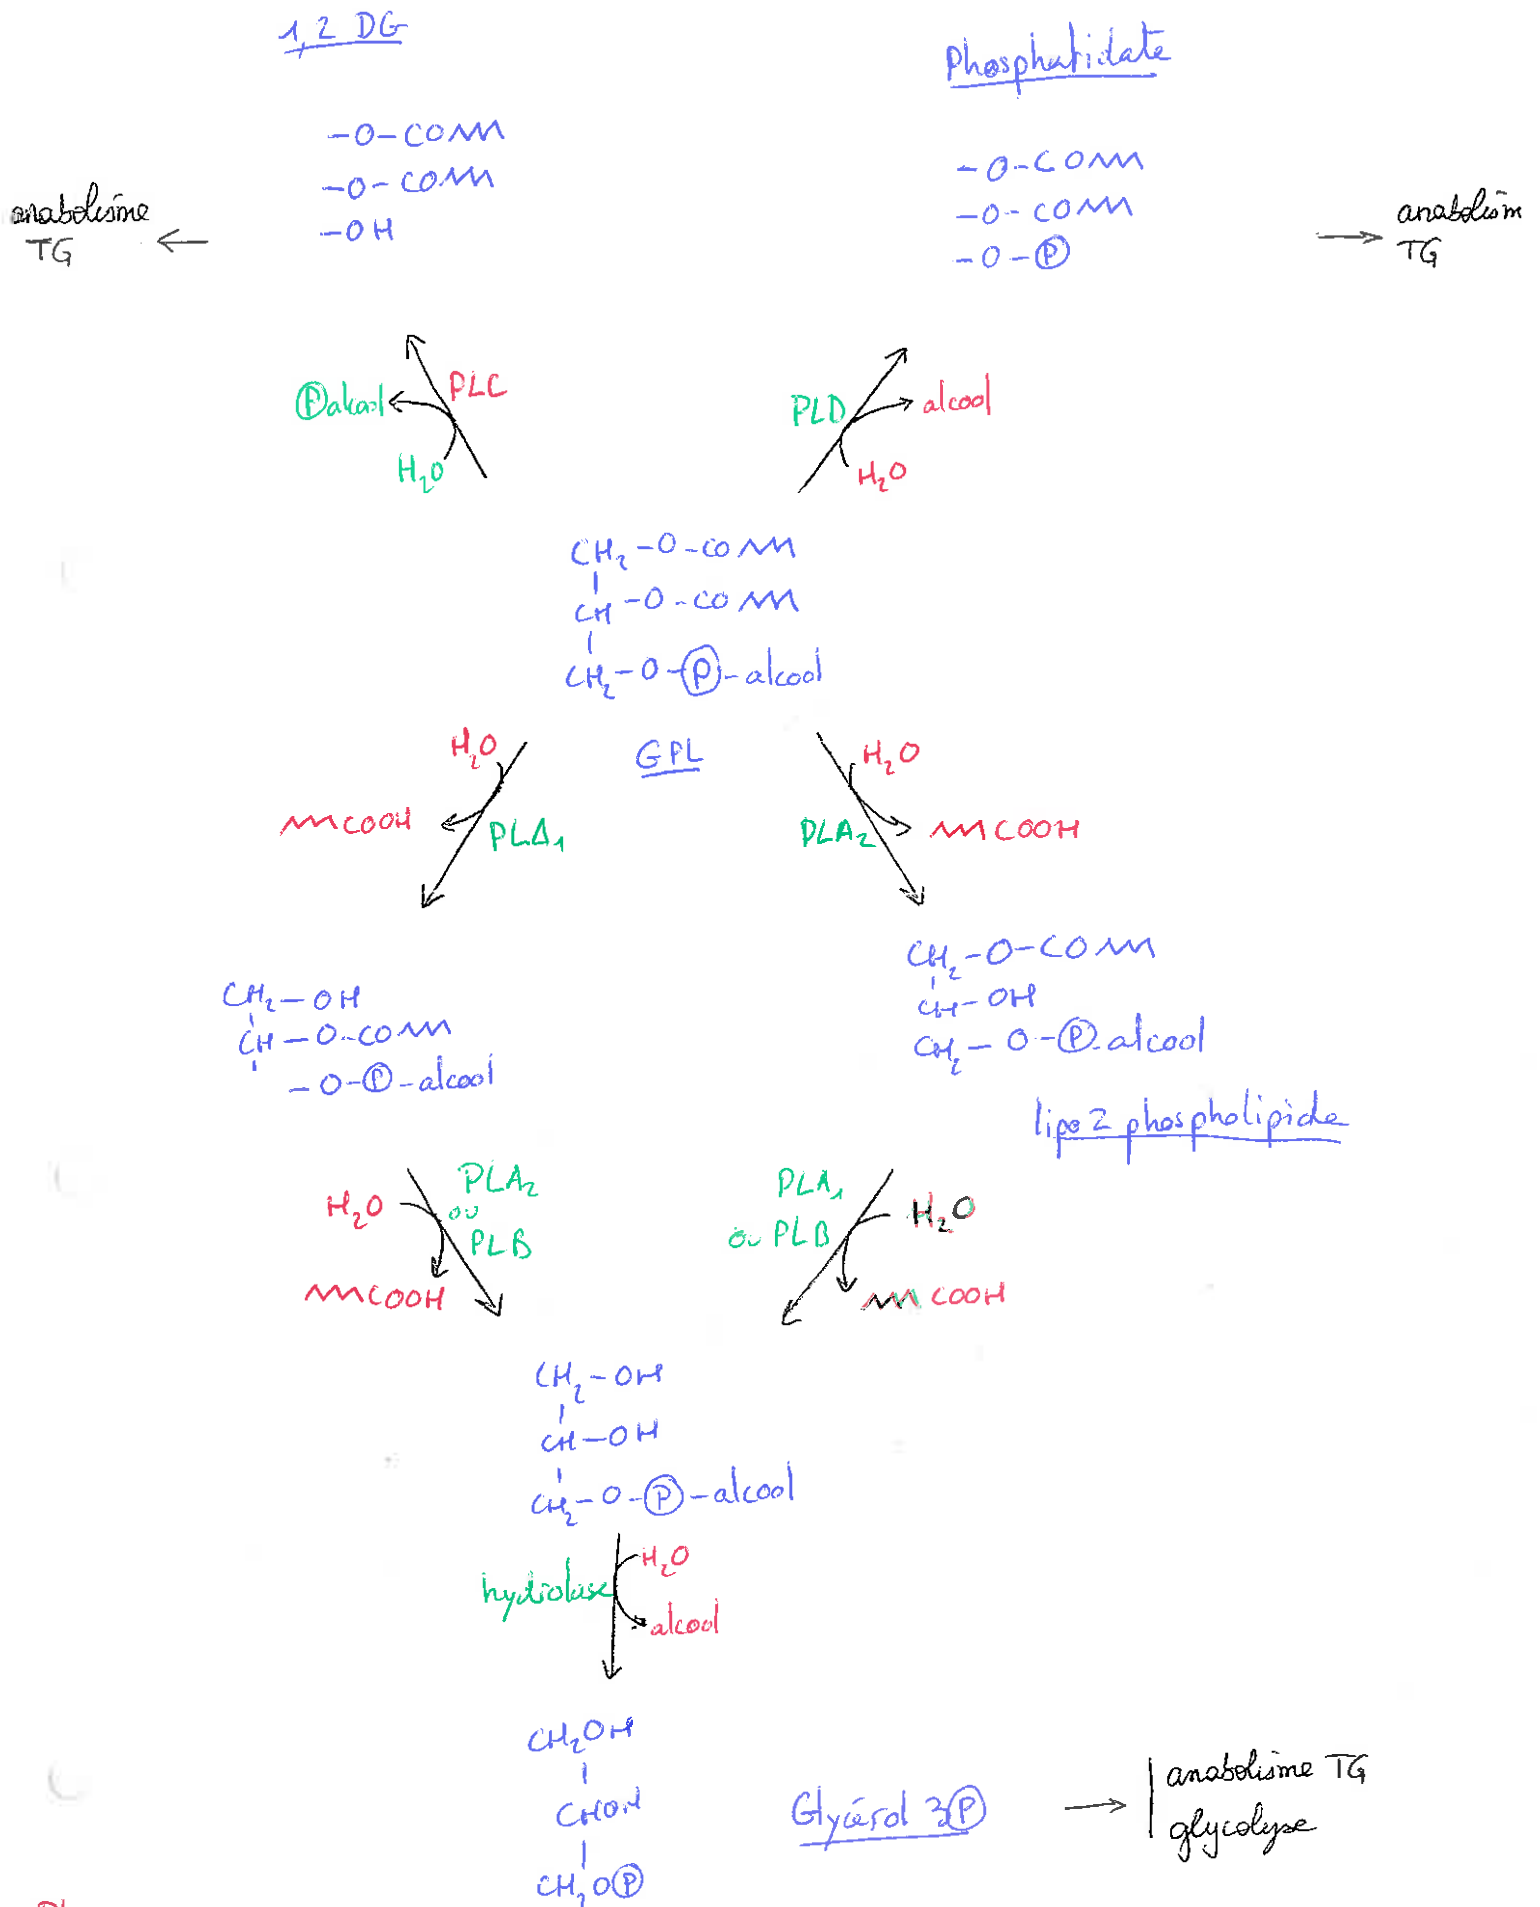 1,2 DG
Phosphatidate
-O-CO
-O-CO
-OH
-O-CO
-O-CO
-O-P
anabolisme
TG
anabolism
TG
PLC
P alcool
H2O
PLD
alcool
H2O
CH2-O-CO
CH-O-CO
CH2-O-P-alcool
GPL
H2O
COOH
PLA1
H2O
PLA2
COOH
CH2-OH
CH-O-CO
-O-P-alcool
CH2-O-CO
CH-OH
CH2-O-P-alcool
lipo 2 phospholipide
H2O
PLA2
ou
PLB
COOH
PLA1
ou PLB
H2O
COOH
CH2-OH
CH-OH
CH2-O-P-alcool
hydrolase
H2O
alcool
CH2OH
CHOH
CH2OP
Glycérol 3P
anabolisme TG
glycolyse